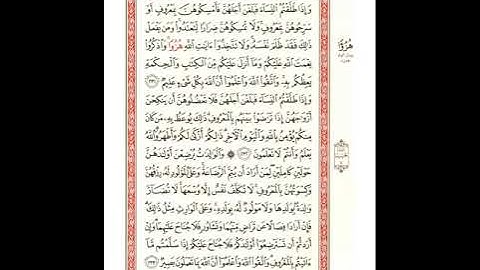 وَإِذَا طَلَّقْتُمُ النِّسَاءَ فَبَلَغْنَ أَجَلَهُنَّ فَأَمْسِكُوهُنَّ بِمَعْرُوفٍ أَوْ
سَرِّحُوهُنَّ بِمَعْرُوفٍ وَلَا تُمْسِكُوهُنَّ ضِرَارًا لِّتَعْتَدُوا وَمَن يَفْعَلْ
ذَٰلِكَ فَقَدْ ظَلَمَ نَفْسَهُ وَلَا تَتَّخِذُوا ءَايَٰتِ اللَّهِ هُزُؤًا وَاذْكُرُوا
نِعْمَتَ اللَّهِ عَلَيْكُمْ وَمَا أَنزَلَ عَلَيْكُم مِّنَ الْكِتَٰبِ وَالْحِكْمَةِ
يَعِظُكُم بِهِ وَاتَّقُوا اللَّهَ وَاعْلَمُوا أَنَّ اللَّهَ بِكُلِّ شَيْءٍ عَلِيمٌ
وَإِذَا طَلَّقْتُمُ النِّسَاءَ فَبَلَغْنَ أَجَلَهُنَّ فَلَا تَعْضُلُوهُنَّ أَن يَنكِحْنَ
أَزْوَٰجَهُنَّ إِذَا تَرَٰضَوْا بَيْنَهُم بِالْمَعْرُوفِ ذَٰلِكَ يُوعَظُ بِهِ مَن كَانَ
مِنكُمْ يُؤْمِنُ بِاللَّهِ وَالْيَوْمِ الْآخِرِ ذَٰلِكُمْ أَزْكَىٰ لَكُمْ وَأَطْهَرُ وَاللَّهُ
يَعْلَمُ وَأَنتُمْ لَا تَعْلَمُونَ ۞ وَالْوَٰلِدَٰتُ يُرْضِعْنَ أَوْلَٰدَهُنَّ
حَوْلَيْنِ كَامِلَيْنِ لِمَنْ أَرَادَ أَن يُتِمَّ الرَّضَاعَةَ وَعَلَى الْمَوْلُودِ لَهُ رِزْقُهُنَّ
وَكِسْوَتُهُنَّ بِالْمَعْرُوفِ لَا تُكَلَّفُ نَفْسٌ إِلَّا وُسْعَهَا لَا تُضَارَّ
وَٰلِدَةٌ بِوَلَدِهَا وَلَا مَوْلُودٌ لَّهُ بِوَلَدِهِ وَعَلَى الْوَارِثِ مِثْلُ ذَٰلِكَ
فَإِنْ أَرَادَا فِصَالًا عَن تَرَاضٍ مِّنْهُمَا وَتَشَاوُرٍ فَلَا جُنَاحَ عَلَيْهِمَا وَإِنْ
أَرَدتُّمْ أَن تَسْتَرْضِعُوا أَوْلَٰدَكُمْ فَلَا جُنَاحَ عَلَيْكُمْ إِذَا سَلَّمْتُم مَّا
ءَاتَيْتُم بِالْمَعْرُوفِ وَاتَّقُوا اللَّهَ وَاعْلَمُوا أَنَّ اللَّهَ بِمَا تَعْمَلُونَ بَصِيرٌ
هُزُؤًا